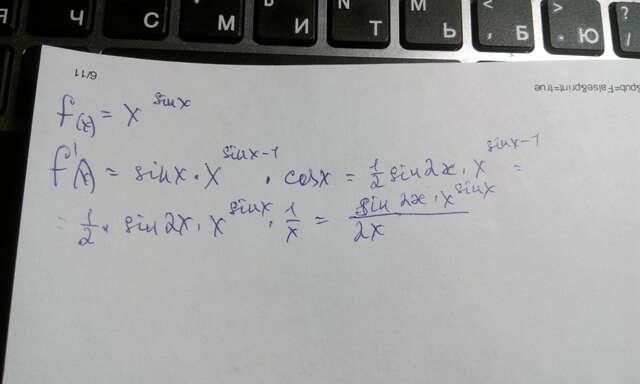 Я Ч С М И Т Ь < , Б > . Ю ? /
6/11
&pub=False&print=true
f(x) = x^sinx
f'(x) = sinx · x^sinx-1 · cosx = 1/2 sin2x · x^sinx-1 =
= 1/2 · sin2x · x^sinx · 1/x = sin2x · x^sinx / 2x